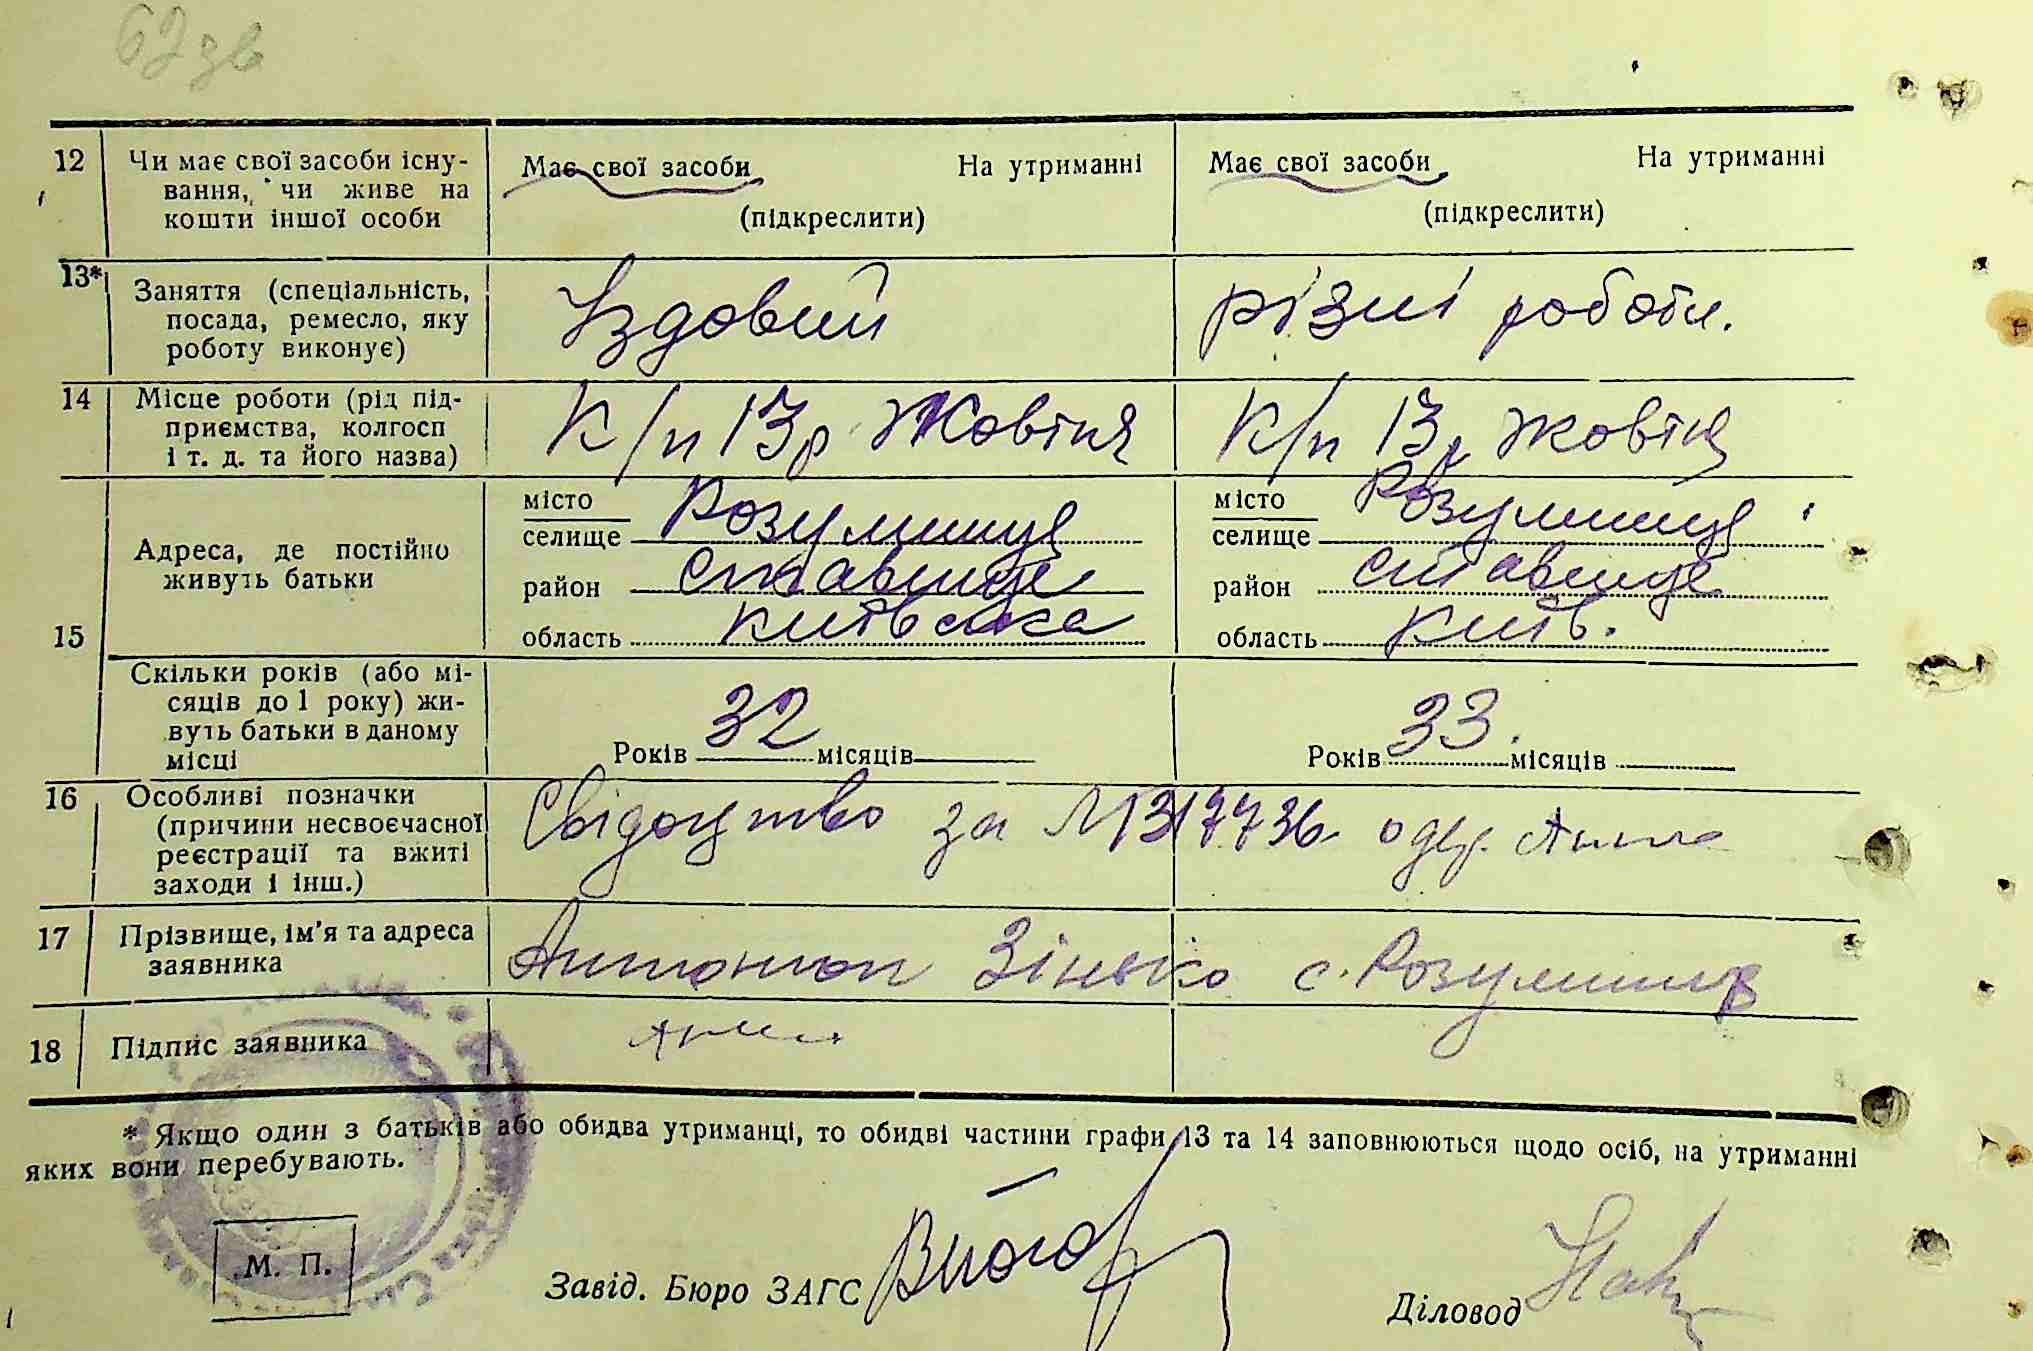 62 зв
12 Чи має свої засоби існу- Має свої засоби На утриманні Має свої засоби На утриманні
вання, чи живе на
кошти іншої особи (підкреслити) (підкреслити)
13* Заняття (спеціальність, Їздовий різні роботи.
посада, ремесло, яку
роботу виконує)
14 Місце роботи (рід під- К/п 13 р Жовтня К/п 13 р Жовтня
приємства, колгосп
і т. д. та його назва)
15 Адреса, де постійно місто Розумниця місто Розумниця
живуть батьки селище селище
район Ставище район Ставище
область Київська область Київ.
Скільки років (або мі-
сяців до 1 року) жи-
вуть батьки в даному Років 32 місяців Років 33. місяців
місці
16 Особливі позначки Свідоцтво за № 317736 одер.
(причини несвоєчасної
реєстрації та вжиті
заходи і інш.)
17 Прізвище, ім'я та адреса Антонюк Зінько с. Розумниця
заявника
18 Підпис заявника
* Якщо один з батьків або обидва утриманці, то обидві частини графи 13 та 14 заповнюються щодо осіб, на утриманні
яких вони перебувають.
М. П.
Завід. Бюро ЗАГС
Діловод